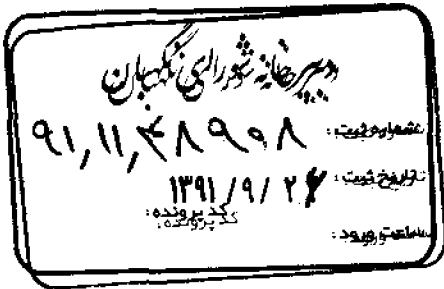 دبیرخانه شورای نگهبان
شماره ثبت: ۹۱,۱۱,۴۸۹۰۸
تاریخ ثبت: ۱۳۹۱/۹/۲
کد پرونده:
ساعت ورود: